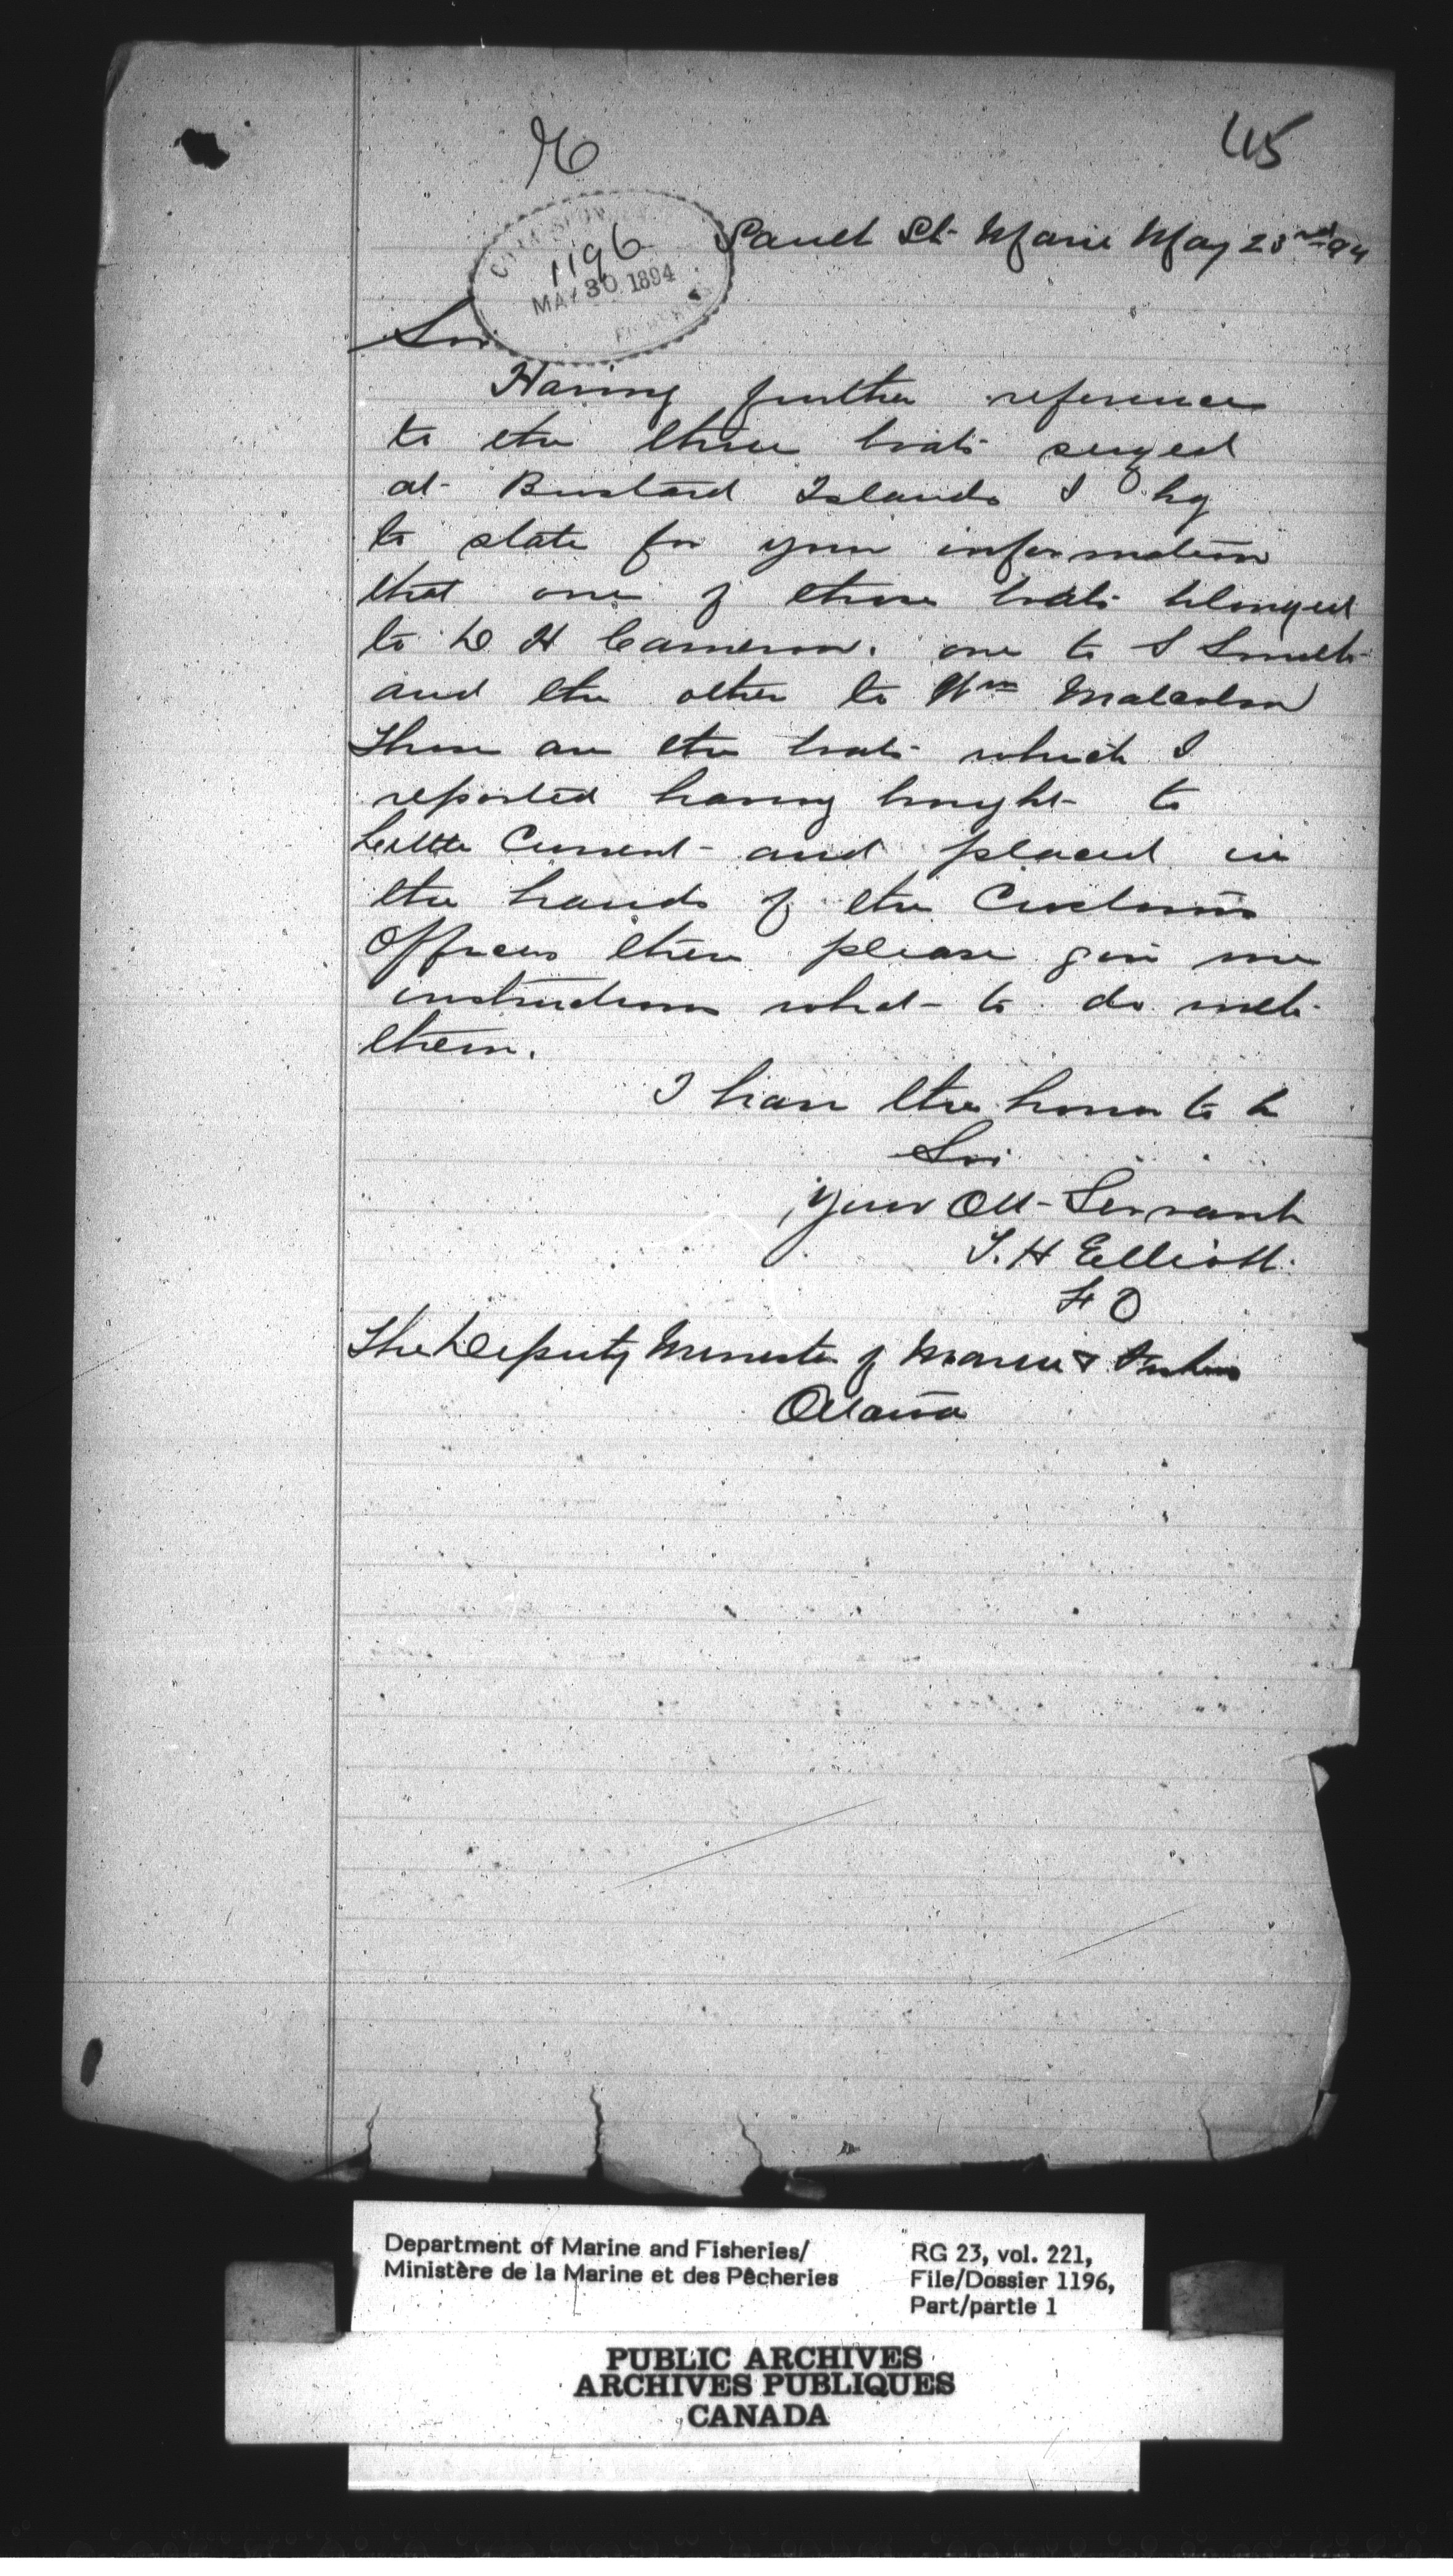 45
1196
MAY 30 1894
FISHERIES
Sault Ste Marie May 23rd 94
Sir
Having further reference
to the three boats seized
at Bustard Islands I beg
to state for your information
that one of those boats belonged
to D H Cameron. one to S Smith
and the other to Wm Malcolm
These are the boats which I
reported having brought to
Little Current and placed in
the hands of the Customs
Officers there please give me
instructions what to do with
them.
I have the honor to be
Sir
Your Obt Servant
T. H Elliott.
F O
The Deputy Minister of Marine & Fisheries
Ottawa
Department of Marine and Fisheries/
Ministère de la Marine et des Pêcheries
RG 23, vol. 221,
File/Dossier 1196,
Part/partie 1
PUBLIC ARCHIVES
ARCHIVES PUBLIQUES
CANADA